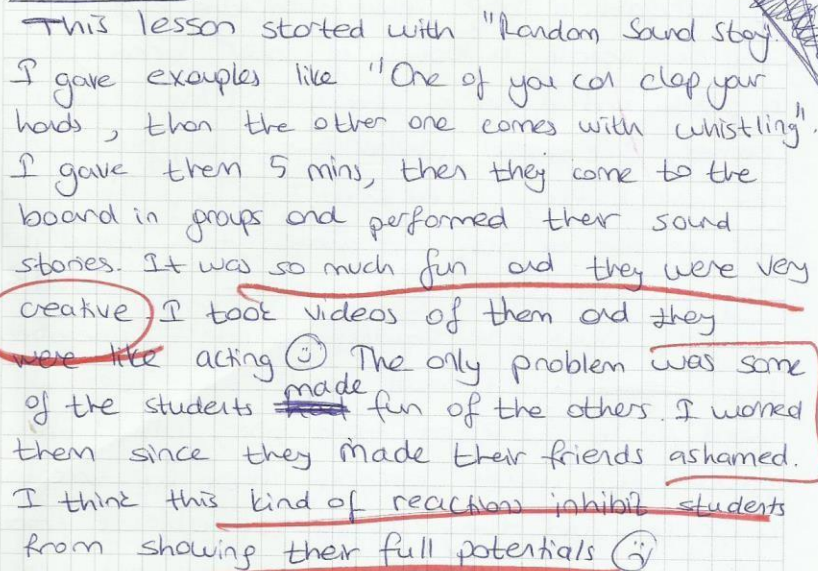 This lesson started with "Random Sound Story.
I gave examples like "One of you can clap your
hands, then the other one comes with whistling".
I gave them 5 mins, then they come to the
board in groups and performed their sound
stories. It was so much fun and they were very
creative. I took videos of them and they
were like acting ☺ The only problem was some
of the students made fun of the others. I warned
them since they made their friends ashamed.
I think this kind of reactions inhibit students
from showing their full potentials ☹